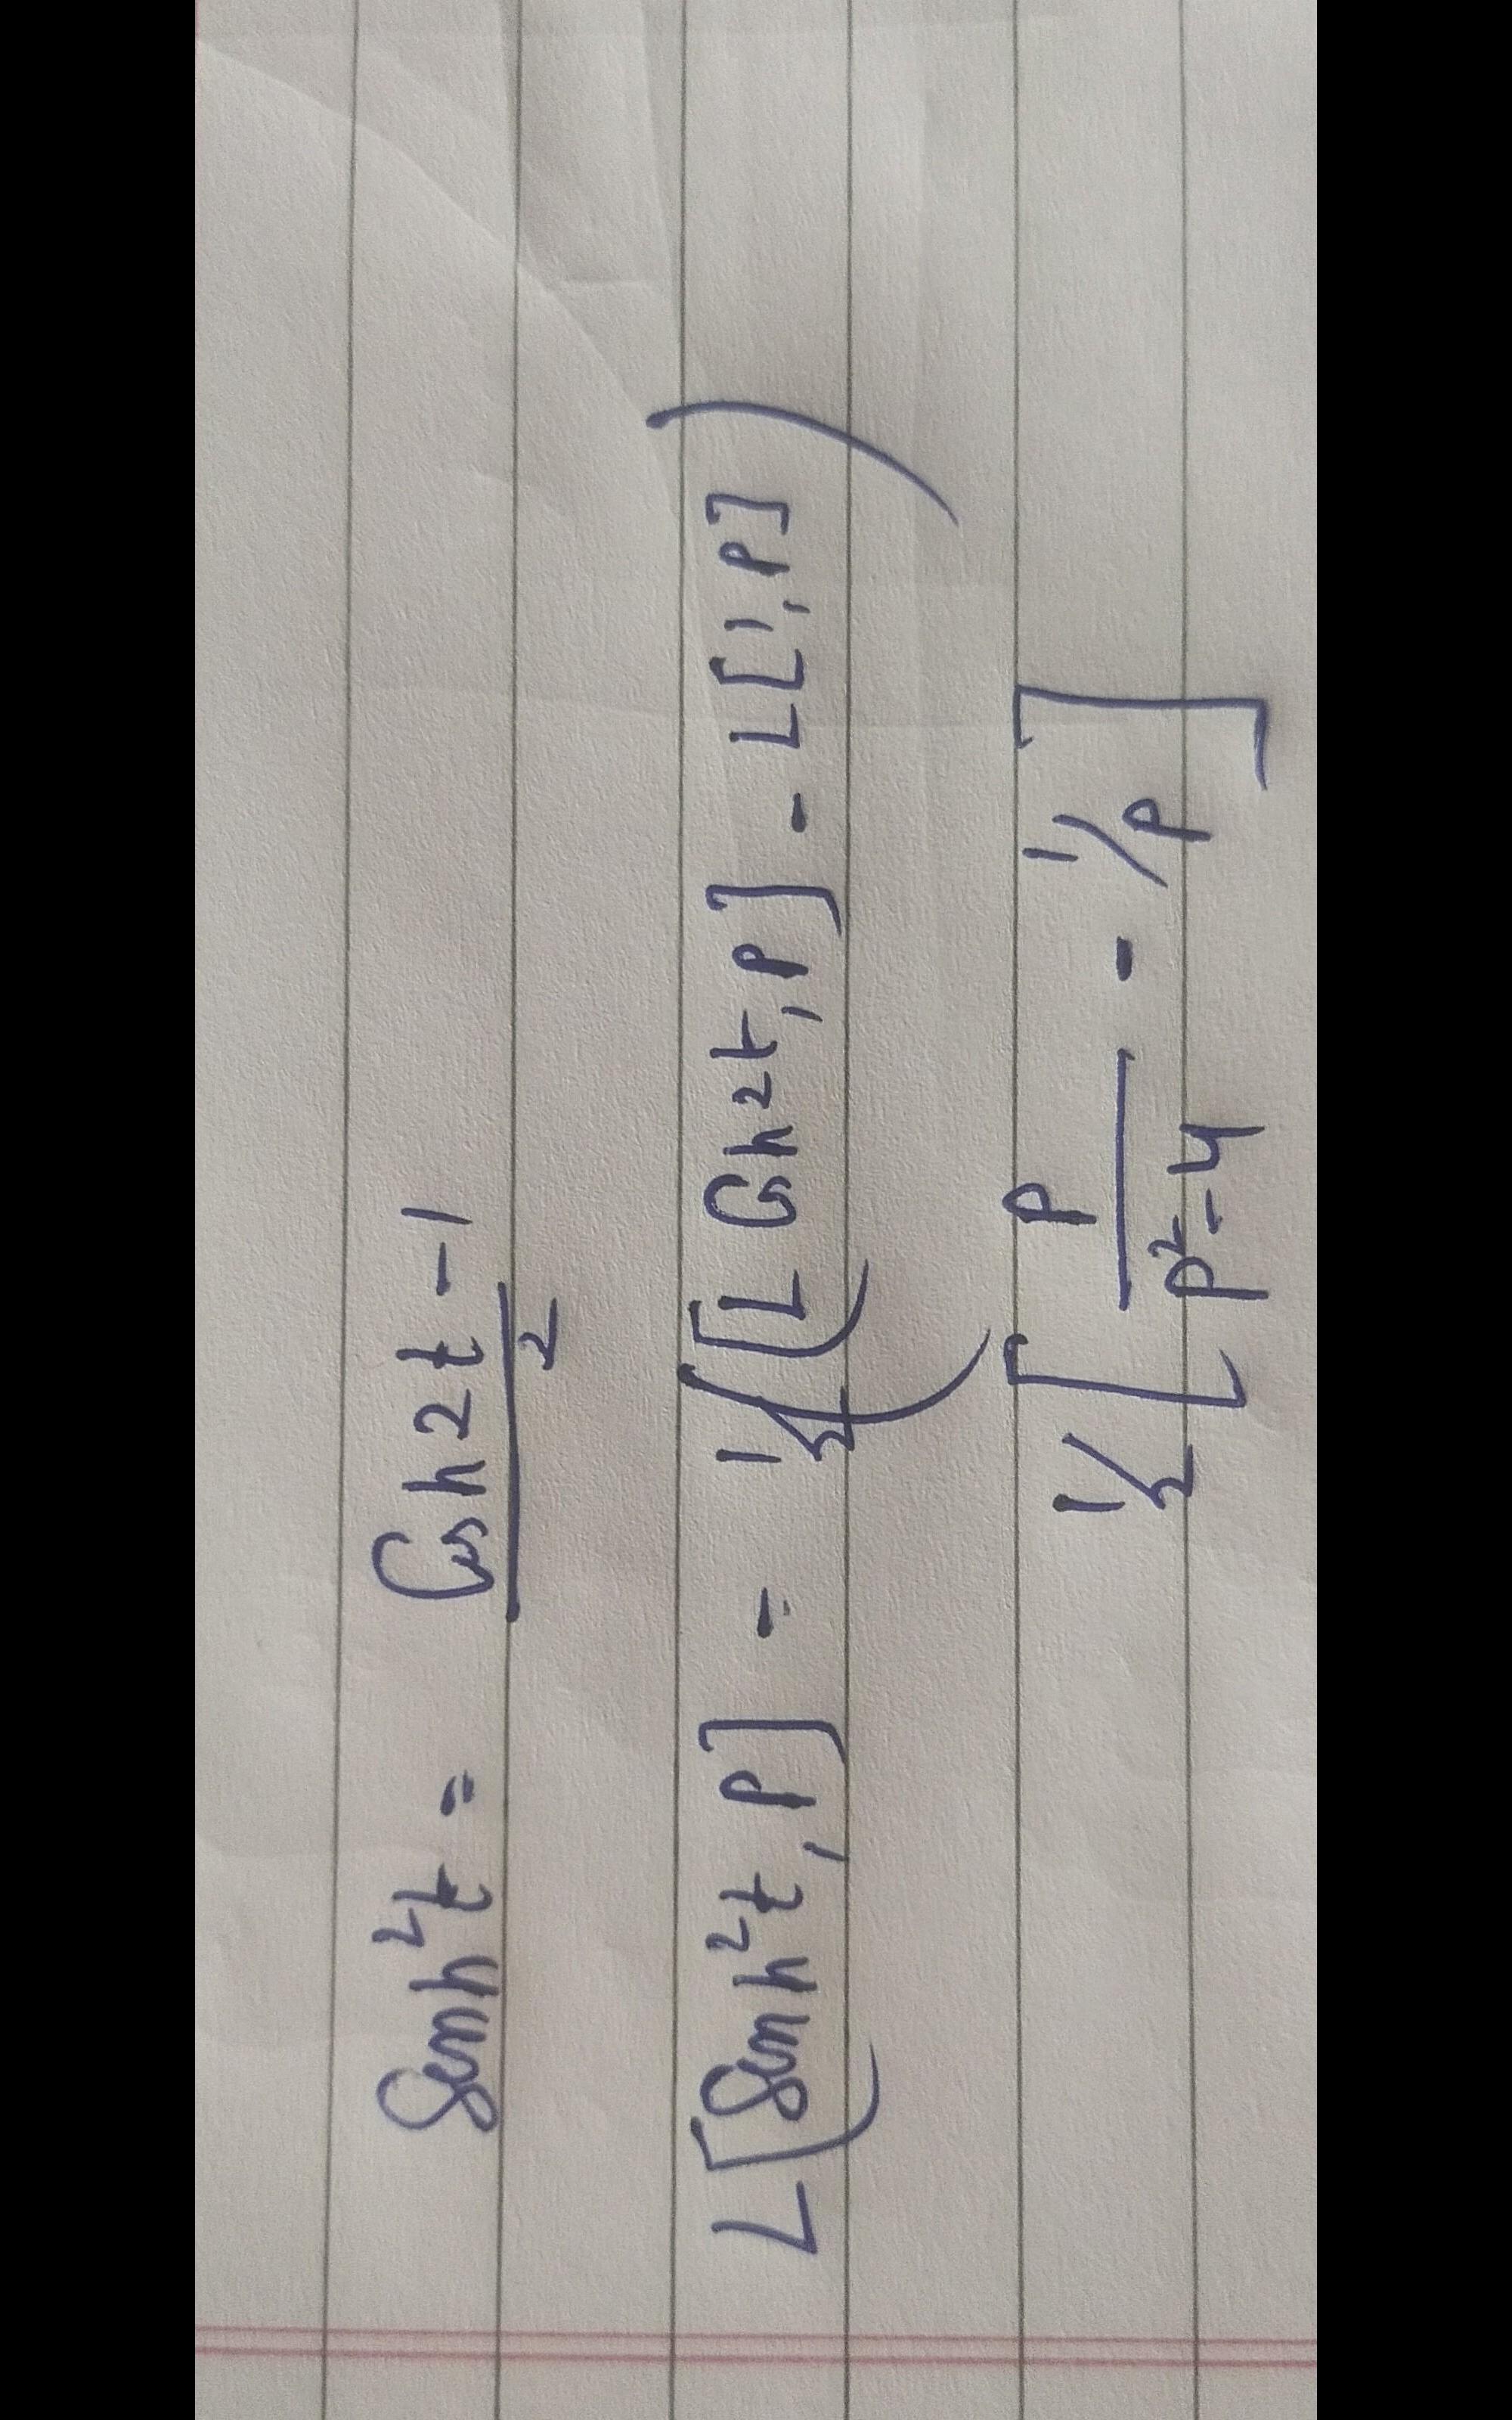 Sinh²t = Cosh2t - 1 / 2
L[Sinh²t, p] = 1/2 ([L Cosh2t, p] - L[1, p])
1/2 [p / p²-4 - 1/p]